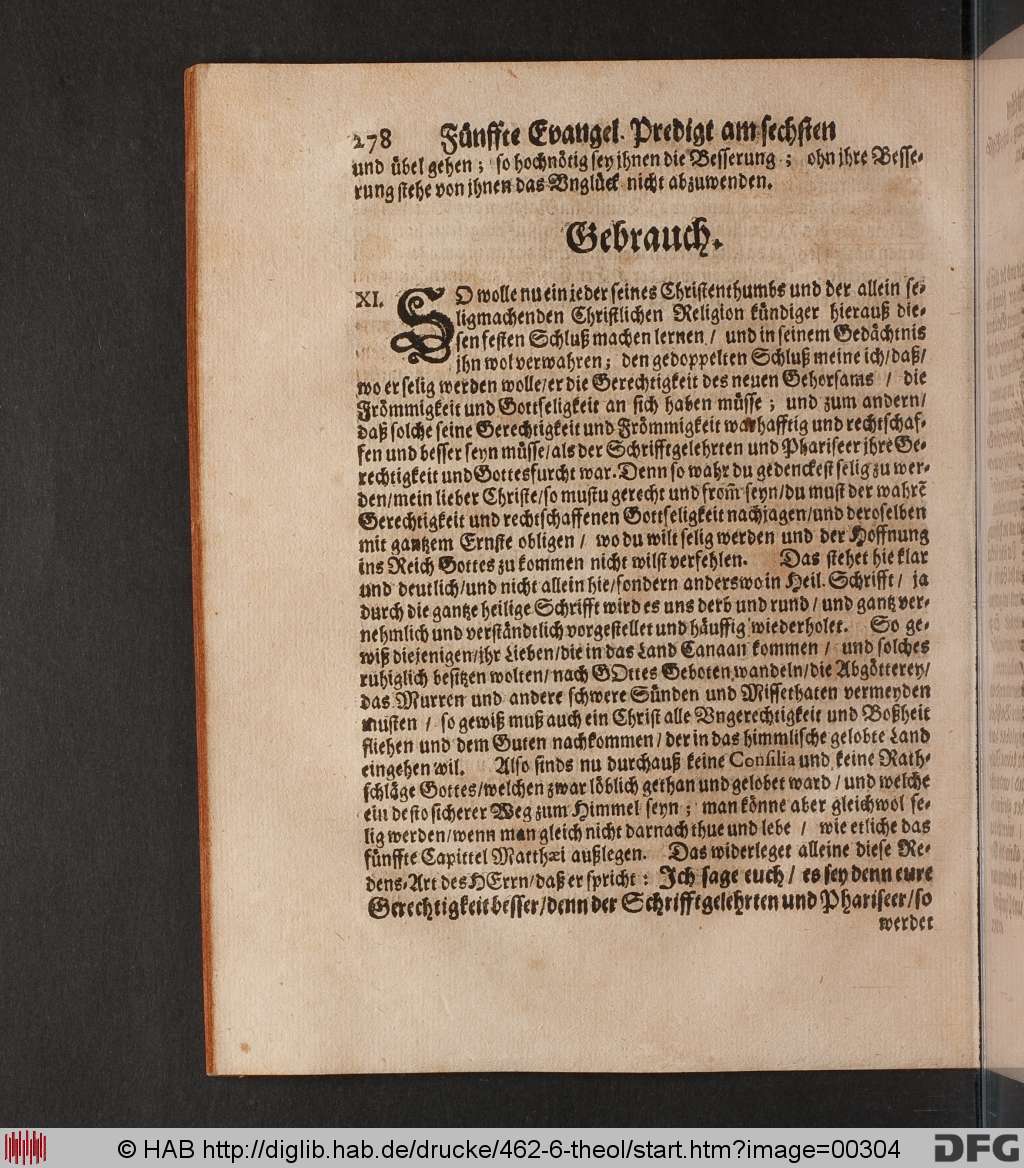 278 Fünffte Evangel. Predigt am sechsten
und übel gehen; so hochnötig sey jhnen die Besserung; ohn jhre Besse-
rung stehe von jhnen das Vnglück nicht abzuwenden.
Gebrauch.
XI. SO wolle nu ein jeder seines Christenthumbs und der allein se-
ligmachenden Christlichen Religion kündiger hierauß die-
sen festen Schluß machen lernen / und in seinem Gedächtnis
jhn wol verwahren; den gedoppelten Schluß meine ich/ daß/
wo er selig werden wolle/ er die Gerechtigkeit des neuen Gehorsams / die
Frömmigkeit und Gottseligkeit an sich haben müsse; und zum andern/
daß solche seine Gerechtigkeit und Frömmigkeit warhafftig und rechtschaf-
fen und besser seyn müsse/ als der Schrifftgelehrten und Phariseer jhre Ge-
rechtigkeit und Gottesfurcht war. Denn so wahr du gedenckest selig zu wer-
den/ mein lieber Christe/ so mustu gerecht und from̃ seyn/ du must der wahrẽ
Gerechtigkeit und rechtschaffenen Gottseligkeit nachjagen/ und deroselben
mit gantzem Ernste obligen / wo du wilt selig werden und der Hoffnung
ins Reich Gottes zu kommen nicht wilst verfehlen. Das stehet hie klar
und deutlich/ und nicht allein hie/ sondern anderswo in Heil. Schrifft / ja
durch die gantze heilige Schrifft wird es uns derb und rund / und gantz ver-
nehmlich und verständtlich vorgestellet und häuffig wiederholet. So ge-
wiß diejenigen/ jhr Lieben/ die in das Land Canaan kommen / und solches
ruhiglich besitzen wolten/ nach GOttes Geboten wandeln/ die Abgötterey/
das Murren und andere schwere Sünden und Missethaten vermeyden
musten / so gewiß muß auch ein Christ alle Vngerechtigkeit und Boßheit
fliehen und dem Guten nachkommen / der in das himmlische gelobte Land
eingehen wil. Also sinds nu durchauß keine Consilia und keine Rath-
schläge Gottes/ welchen zwar löblich gethan und gelobet ward / und welche
ein desto sicherer Weg zum Himmel seyn; man könne aber gleichwol se-
lig werden/ wenn man gleich nicht darnach thue und lebe / wie etliche das
fünffte Capittel Matthæi außlegen. Das widerleget alleine diese Re-
dens-Art des HErrn/ daß er spricht: Ich sage euch / es sey denn eure
Gerechtigkeit besser/ denn der Schrifftgelehrten und Phariseer/ so
werdet
© HAB http://diglib.hab.de/drucke/462-6-theol/start.htm?image=00304
DFG